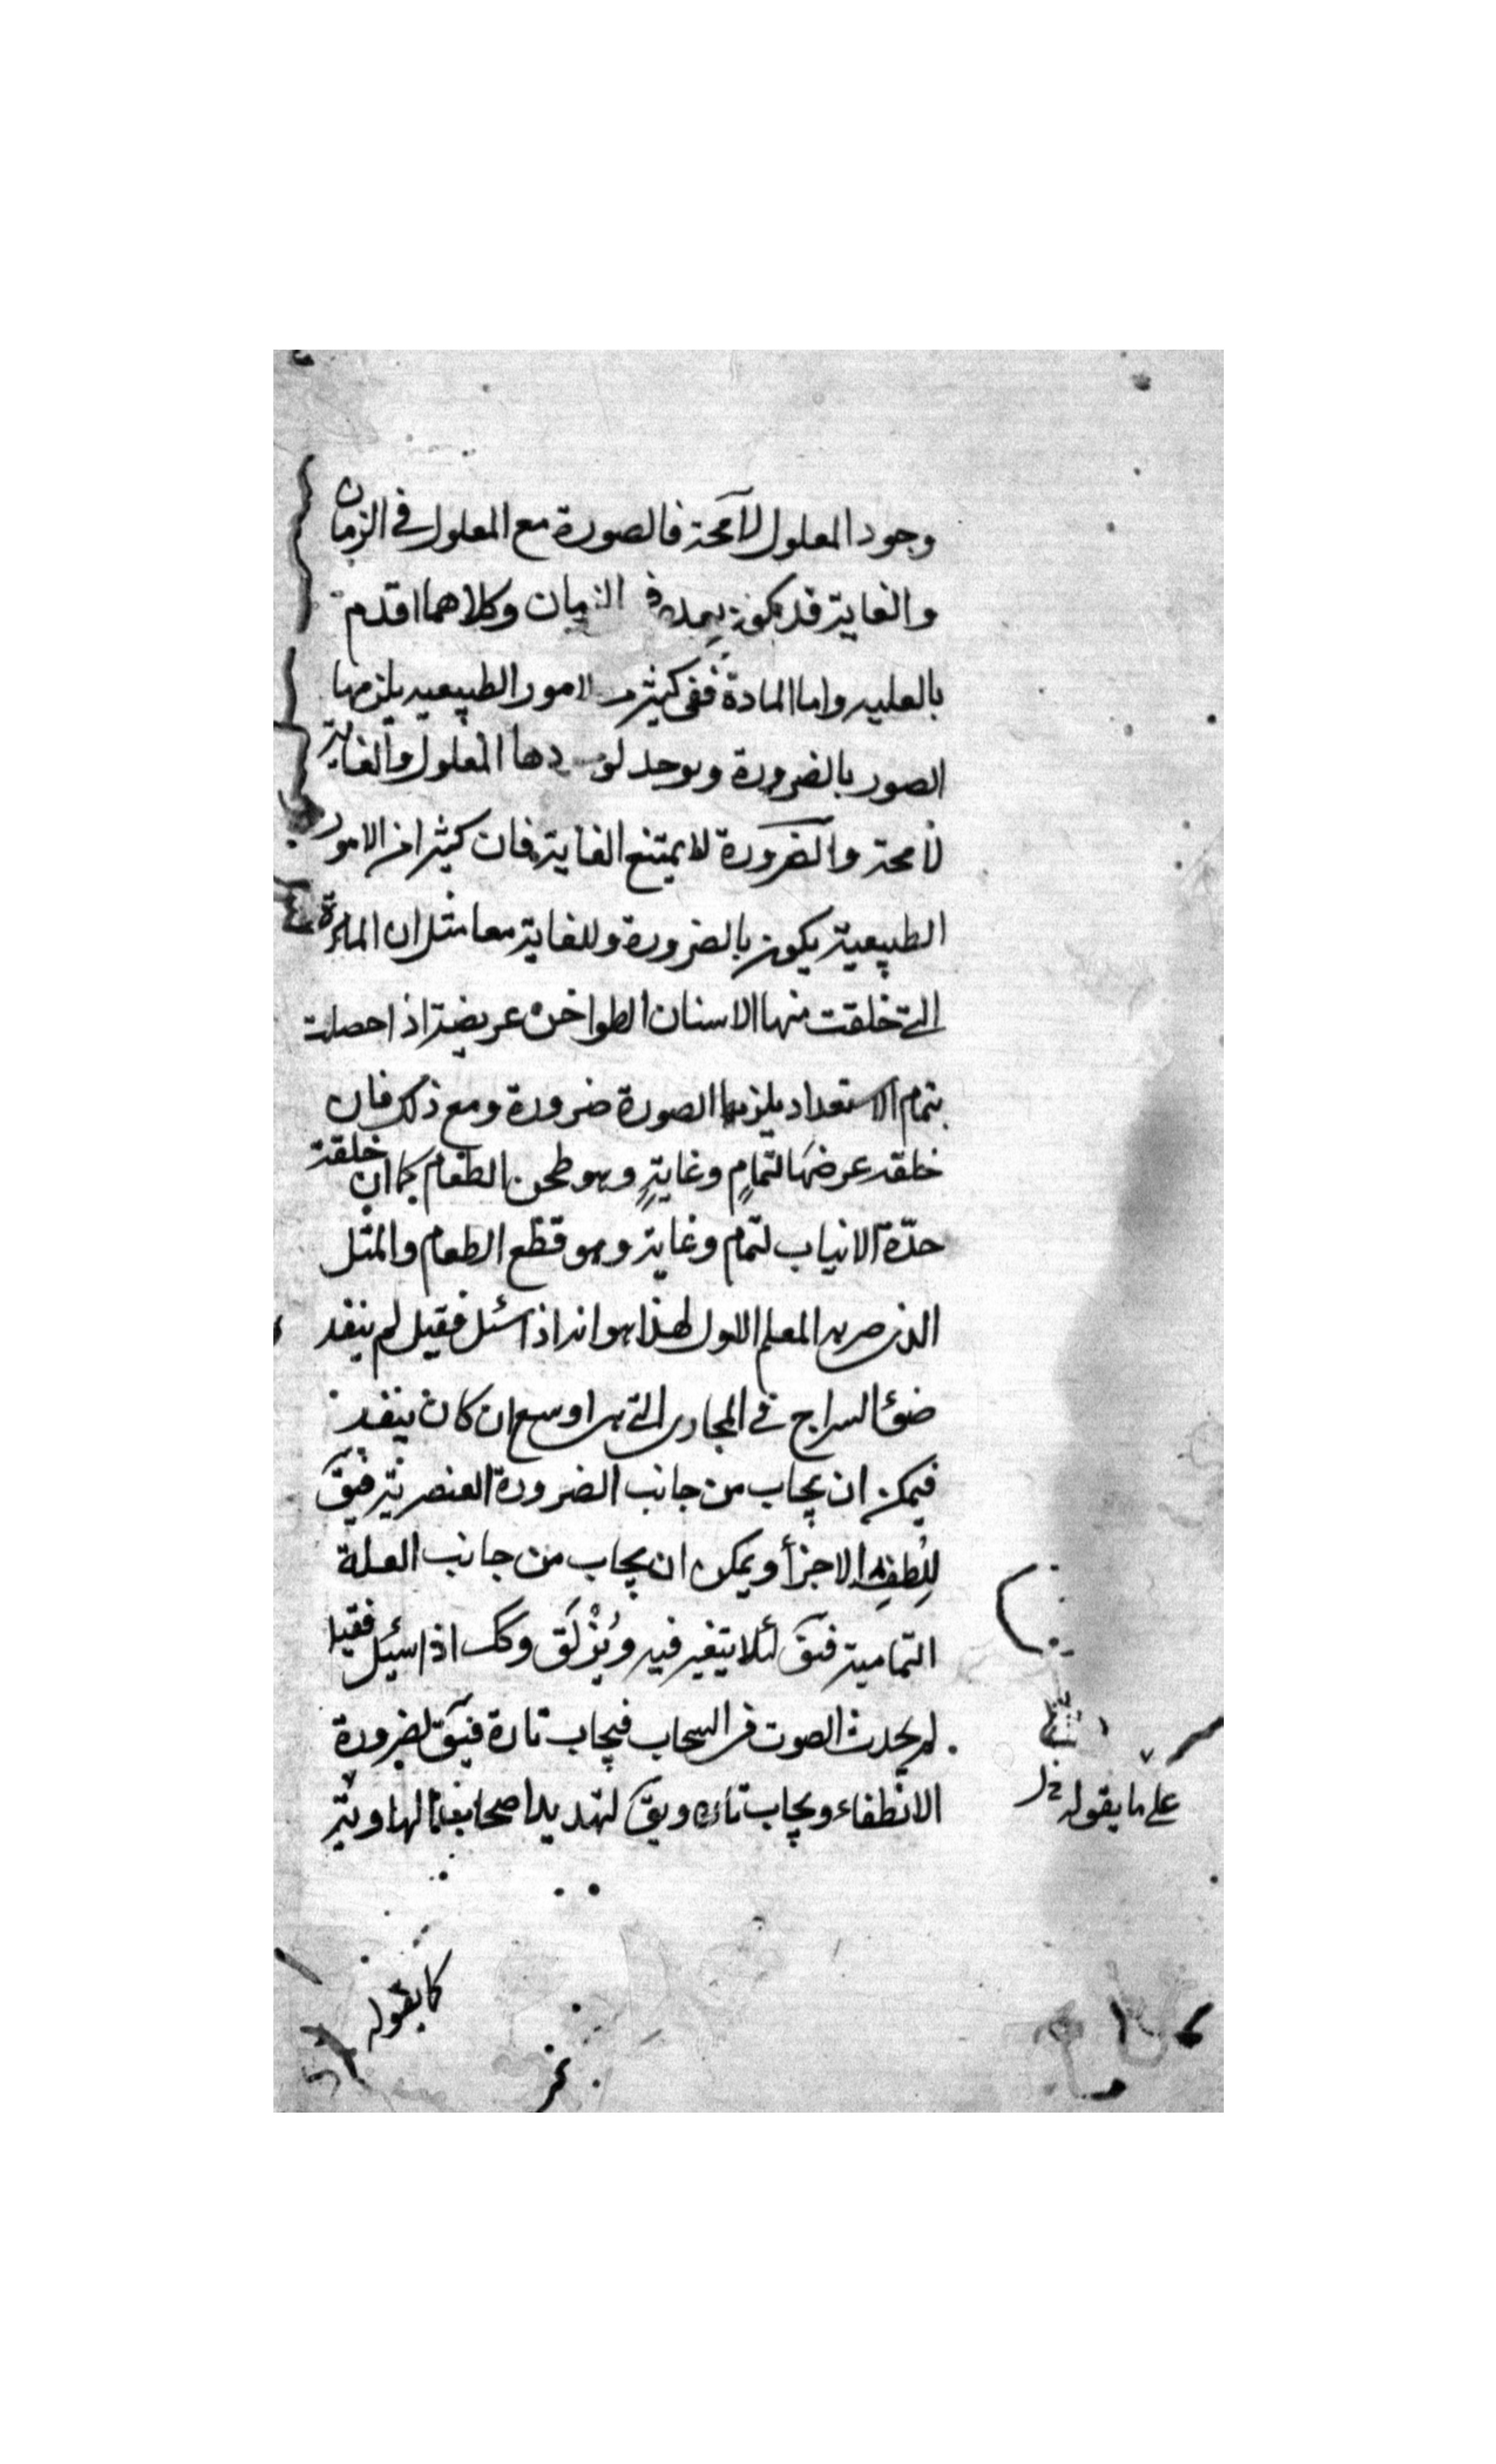 وجود المعلول لا محة فالصورة مع المعلول في الزمان
والغاية قد يكون بعده في الزمان وكلاهما اقدم
بالعليه واما المادة ففى كثير الامور الطبيعيه يلزمها
الصور بالضرورة ويوجد المعلول والغاية
لا محة والضرورة لا يمتنع الغاية فان كثيرا من الامور
الطبيعية يكون بالضرورة وللغاية معا مثل ان المادة
التى خلقت منها الاسنان الطواحن عريضة اذا حصلت
بتمام الاستعداد يلزمها الصورة ضرورة ومع ذلك فان
خلقه عرضها لتمامٍ وغايةٍ وهو طحن الطعام كما ان خلقة
حدّة الانياب لتمام وغاية وهو قطع الطعام والمثل
الذى ضربه المعلم الاول لهذا هو انه اذا سئل فقيل لم ينفد
ضوء السراج فى المجارى التى هى اوسع ان كان ينفد
فيمكن ان يجاب من جانب الضرورة العنصرية فيق
للطف الاجزأ ويمكن ان يجاب من جانب العلة
التمامية فيق لئلا يتغير فيه ويُزْلَق وكك اذا سئل فقيل
لم يحدث الصوت فى السحاب فيجاب تارة فيق لضرورة
الانطفاء ويجاب تارة ويق لتهديد اصحاب
على ما يقوله
كما يقوله